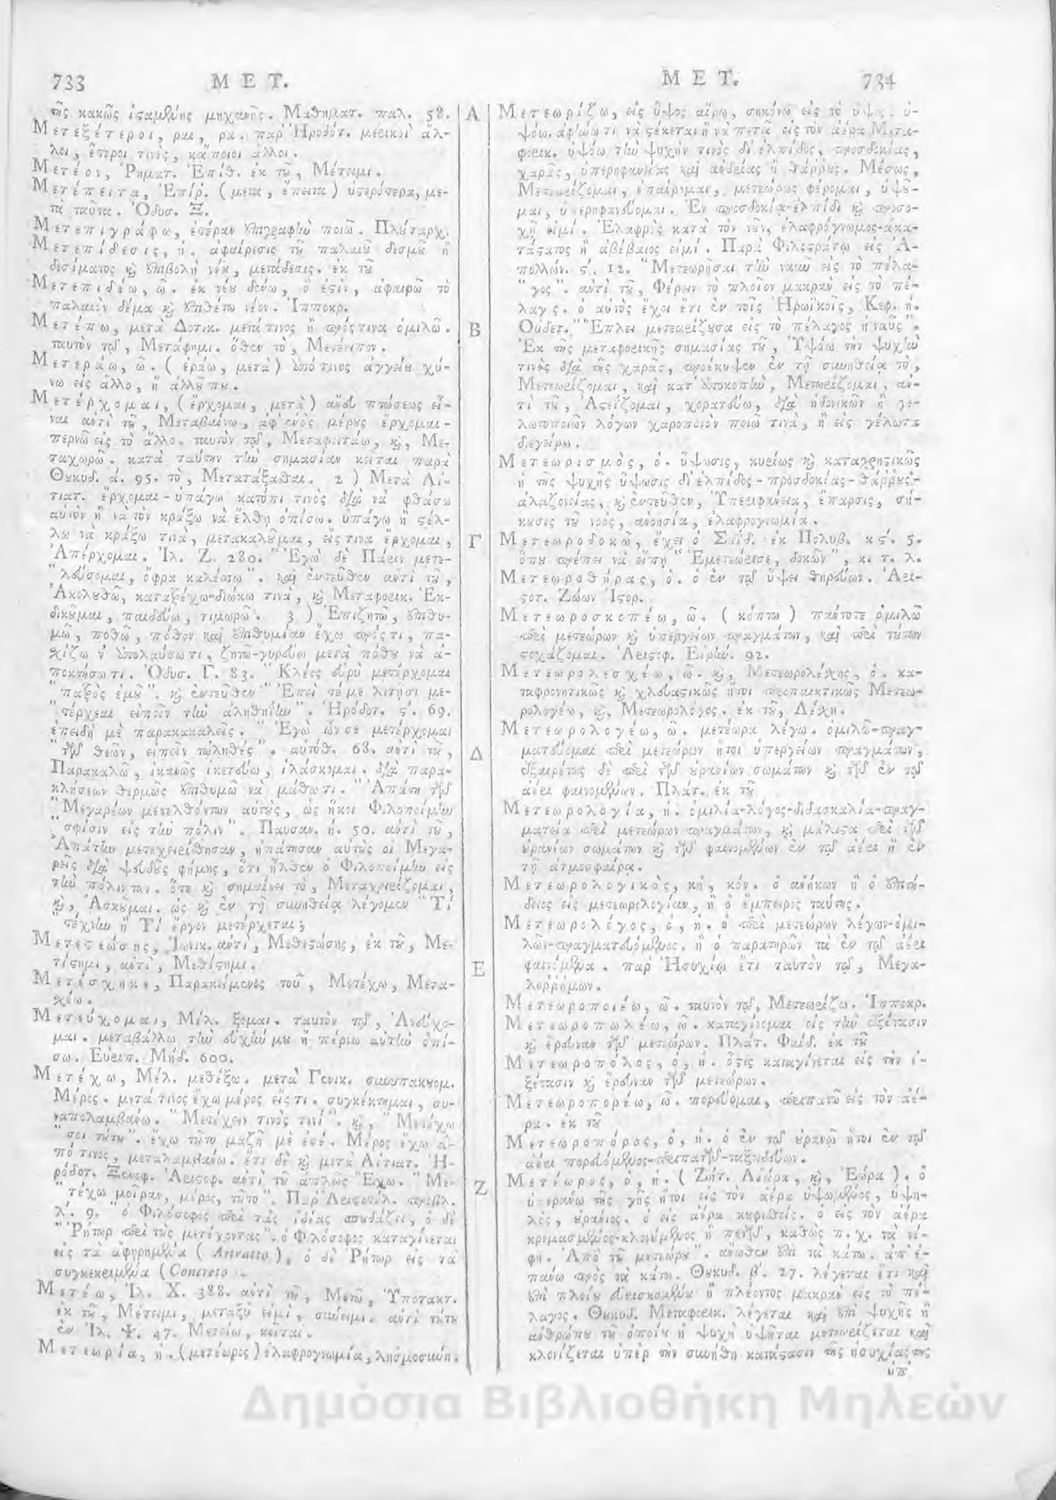 733 ΜΕΤ.
τῆς κακῶς ἱσαμένης μηχανῆς. Μαθηματ. παλ. 58.
Μετεξέτεροι, ραι, ρα. παρ' Ἡροδότ. μερικοὶ ἄλ-
λοι, ἕτεροι τινὲς, κάποιοι ἄλλοι.
Μετέον, Ῥηματ. Ἐπίθ. ἐκ τοῦ, Μέτειμι.
Μετέπειτα, Ἐπίῤ. (μετὰ, ἔπειτα) ὑστερότερα, με-
τὰ ταῦτα. Ὀδυσ. Ξ.
Μετεπιγράφω, ἑτέραν ἐπιγραφὴν ποιῶ. Πλούταρχ.
Μετεπίδεσις, ἡ. ἀφαίρεσις τοῦ παλαιοῦ δεσμοῦ ἢ
δεσίματος καὶ ἐπιβολὴ νέου, μετάδεσις. ἐκ τοῦ
Μετεπιδέω, ῶ. ἐκ νέου δένω, ὅ ἐστιν, ἀφαιρῶ τὸ
παλαιὸν δέμα καὶ ἐπιθέτω νέον. Ἱπποκρ.
Μετέπω, μετὰ Δοτικ. μετά τινος ἢ πρός τινα ὁμιλῶ.
ταυτὸν τῷ, Μετάφημι. ὅθεν τὸ, Μετέειπον.
Μετεράω, ῶ. (ἐράω, μετὰ) ἀπό τινος ἀγγείου χύ-
νω εἰς ἄλλο, ἢ ἀλλοῦ που.
Μετέρχομαι, (ἔρχομαι, μετὰ) ἄνευ πτώσεως εἶ-
ναι ἀντὶ τοῦ, Μεταβαίνω, ἀφ' ἑνὸς μέρους ἔρχομαι-
περνῶ εἰς τὸ ἄλλο. ταυτὸν τῷ, Μεταφοιτάω, καὶ, Με-
ταχωρῶ. κατὰ ταύτην τὴν σημασίαν κεῖται παρὰ
Θουκυδ. ά. 95. τὸ, Μετατάξασθαι. 2) Μετὰ Αἰ-
τιατ. ἔρχομαι-ὑπάγω κατόπι τινὸς διὰ νὰ φθάσω
αὐτὸν ἢ νὰ τὸν κράξω νὰ ἔλθῃ ὀπίσω. ὑπάγω ἢ στέλ-
λω νὰ κράξω τινὰ, μετακαλοῦμαι, εἴς τινα ἔρχομαι,
Ἀπέρχομαι. Ἰλ. Ζ. 280. "Ἐγὼ δὲ Πάριν μετε-
"λεύσομαι, ὄφρα καλέσσω". καὶ ἐντεῦθεν ἀντὶ τοῦ,
Ἀκολουθῶ, κατατρέχω-διώκω τινὰ, καὶ Μεταφορικ. Ἐκ-
δικοῦμαι, παιδεύω, τιμωρῶ. 3) Ἐπιζητῶ, ἐπιθυ-
μῶ, ποθῶ, πόθον καὶ ἐπιθυμίαν ἔχω πρός τι, πα-
σχίζω ν' ἀπολαύσω τι, ζητῶ-γυρεύω μετὰ πόθου νὰ ἀ-
ποκτήσω τι. Ὀδυσ. Γ. 83. "Κλέος εὐρὺ μετέρχομαι
"πατρὸς ἐμοῦ". καὶ ἐντεῦθεν "Ἐπεί τέ με λιτῇσι με-
"τέρχεαι εἰπεῖν τὴν ἀληθηίην". Ἡρόδοτ. ϛ'. 69.
ἐπειδὴ μὲ παρακακαλεῖς. "Ἐγὼ ὦν σε μετέρχομαι
"τῶν θεῶν, εἰπεῖν τὠληθές". αὐτόθ. 68. ἀντὶ τοῦ,
Παρακαλῶ, ἱκανῶς ἱκετεύω, ἱλάσκομαι. διὰ παρα-
κλήσεων θερμῶς ἐπιθυμῶ νὰ μάθω τι. "Ἀπάτῃ τῶν
"Μεγαρέων μετελθόντων αὐτοὺς, ὡς ἥκοι Φιλοποίμην
"σφίσιν εἰς τὴν πόλιν". Παυσαν. ή. 50. ἀντὶ τοῦ,
Ἀπάτην μετεχειρίσθησαν, ἠπάτησαν αὐτοὺς οἱ Μεγα-
ρεῖς διὰ ψευδοῦς φήμης, ὅτι ἦλθεν ὁ Φιλοποίμην εἰς
τὴν πόλιν των. ὅτε καὶ σημαίνει τὸ, Μεταχειρίζομαι,
καὶ, Ἀσκοῦμαι. ὡς καὶ ἐν τῇ συνηθείᾳ λέγομεν "Τί
"τέχνην ἢ Τί ἔργον μετέρχεται;
Μετεστεώσης, Ἰωνικ. ἀντὶ, Μεθεστώσης, ἐκ τοῦ, Με-
τίστημι, ἀντὶ, Μεθίστημι.
Μετέσχηκε, Παρακείμενος τοῦ, Μετέχω, Μετα-
σχέω.
Μετεύχομαι, Μέλ. ξομαι. ταυτὸν τῷ, Ἀνεύχο-
μαι. μεταβάλλω τὴν εὐχήν μου ἢ πέρνω αὐτὴν ὀπί-
σω. Εὐριπ. Μηδ. 600.
Μετέχω, Μέλ. μεθέξω. μετὰ Γενικ. συνυπακουομ.
Μέρος. μετά τινος ἔχω μέρος εἴς τι. συγκέκτημαι, συ-
ναπολαμβάνω. "Μετέχειν τινός τινί". καὶ, "Μετέχω
"σοι τούτου". ἔχω τοῦτο μαζῆ μὲ ἐσέ. Μέρος ἔχω ἀ-
πό τινος, μεταλαμβάνω. ἔτι δὲ καὶ μετὰ Αἰτιατ. Ἡ-
ρόδοτ. Ξενοφ. Ἀριστοφ. ἀντὶ τοῦ ἁπλῶς Ἔχω. "Με-
"τέχω μοῖραν, μέρος, τοῦτο". Παρ' Ἀριστοτέλ. προβλ.
λ'. 9. "ὁ Φιλόσοφος περὶ τὰς ἰδέας σπουδάζει, ὁ δὲ
"Ῥήτωρ περὶ τοὺς μετέχοντας". ὁ Φιλόσοφος καταγίνεται
εἰς τὰ ἀφηρημένα (Astratto), ὁ δὲ Ῥήτωρ εἰς τὰ
συγκεκριμένα (Concreto).
Μετέω, Ἰλ. Χ. 388. ἀντὶ τοῦ, Μετῶ, Ὑποτακτ.
ἐκ τοῦ, Μέτειμι, μεταξὺ εἰμὶ, σύνειμι. ἀντὶ τούτου
ἐν Ἰλ. Ψ. 47. Μετείω, κεῖται.
Μετεωρία, ἡ. (μετέωρος) ἐλαφρογνωμία, λησμοσύνη.
Α
Β
Γ
Δ
Ε
Ζ
ΜΕΤ. 734
Μετεωρίζω, εἰς ὕψος αἴρω, σηκόνω εἰς τὸ ὕψος. ὑ-
ψόω. ἀφίνω τι νὰ στέκεται ἢ νὰ πετᾷ εἰς τὸν ἀέρα. Μετα-
φορικ. ὑψόω τὴν ψυχήν τινος δι' ἐλπίδος, προσδοκίας,
χαρᾶς, ὑπερηφανείας καὶ αὐθαδείας ἢ θάῤῥους. Μέσως,
Μετεωρίζομαι, ἐπαίρομαι, μετέωρος φέρομαι, ὑψό-
μαι, ὑπερηφανεύομαι. Ἐν προσδοκίᾳ-ἐλπίδι καὶ προσο-
χῇ εἰμί. Ἐλαφρὸς κατὰ τὸν νοῦν, ἐλαφρόγνωμος-ἀκα-
τάστατος ἢ ἀβέβαιος εἰμί. Παρὰ Φιλοστράτῳ εἰς Ἀ-
πολλών. ϛ'. 12. "Μετεωρῆσαι τὴν ναῦν εἰς τὸ πέλα-
"γος". ἀντὶ τοῦ, Φέρειν τὸ πλοῖον μακρὰν εἰς τὸ πέ-
λαγος. ὁ αὐτὸς ἔχει ἔτι ἐν τοῖς Ἡρωϊκοῖς, Κεφ. ή.
Οὐδετ. "Ἔπλει μετεωρίζουσα εἰς τὸ πέλαγος ἡ ναῦς".
Ἐκ τῆς μεταφορικῆς σημασίας τοῦ, Ὑψόω τὴν ψυχήν
τινος διὰ τῆς χαρᾶς, προέκυψεν ἐν τῇ συνηθείᾳ τὸ,
Μετεωρίζομαι, καὶ κατ' ἀποκοπὴν, Μετωρίζομαι, ἀν-
τὶ τοῦ, Ἀστείζομαι, χορατεύω, διὰ ἡδονικῶν ἢ γε-
λωτοποιῶν λόγων χαροποιὸν ποιῶ τινὰ, ἢ εἰς γέλωτα
διεγείρω.
Μετεωρισμὸς, ὁ. ὕψησις, κυρίως καὶ καταχρηστικῶς
ἡ τῆς ψυχῆς ὕψωσις δι' ἐλπίδος-προσδοκίας-θάῤῥους-
ἀλαζονείας, καὶ ἐντεῦθεν, Ὑπερηφάνεια, ἔπαρσις, σή-
κωσις τοῦ νοὸς, ἀνοησία, ἐλαφρογνωμία.
Μετεωροδοκῶ, ἔχει ὁ Σουΐδ. ἐκ Πολυβ. κϛ'. 5.
ὅπου πρέπει νὰ εἰπῇ "Ἐμετεώρισε, δοκῶν", κ. τ. λ.
Μετεωροθήρας, ὁ. ὁ ἐν τῷ ὕψει θηρεύων. Ἀρι-
στοτ. Ζώων Ἱστορ.
Μετεωροσκοπέω, ῶ. (κόπτω) πάντοτε ὁμιλῶ
περὶ μετεώρων καὶ ὑπεργείων πραγμάτων, καὶ περὶ τούτων
στοχάζομαι. Ἀριστοφ. Εἰρήν. 92.
Μετεωρολεσχέω, ῶ. καὶ, Μετεωρολέσχης, ὁ. κα-
ταφρονητικῶς καὶ χλευαστικῶς ἤτοι προπαικτικῶς Μετεω-
ρολογέω, καὶ, Μετεωρολόγος. ἐκ τοῦ, Λέσχη.
Μετεωρολογέω, ῶ. μετέωρα λέγω. ὁμιλῶ-πραγ-
ματεύομαι περὶ μετεώρων ἤτοι ὑπεργείων πραγμάτων,
ἐξαιρέτως δὲ περὶ τῶν οὐρανίων σωμάτων καὶ τῶν ἐν τῷ
ἀέρι φαινομένων. Πλάτ. ἐκ τοῦ
Μετεωρολογία, ἡ. ὁμιλία-λόγος-διδασκαλία-πραγ-
ματεία περὶ μετεώρων πραγμάτων, καὶ μάλιστα περὶ τῶν
οὐρανίων σωμάτων καὶ τῶν φαινομένων ἐν τῷ ἀέρι ἢ ἐν
τῇ ἀτμοσφαίρᾳ.
Μετεωρολογικὸς, κὴ, κόν. ὁ ἀνήκων ἢ ὁ ἐπιτή-
δειος εἰς μετεωρολογίαν, ἢ ὁ ἔμπειρος ταύτης.
Μετεωρολόγος, ὁ, ἡ. ὁ περὶ μετεώρων λέγων-ὁμι-
λῶν-πραγματευόμενος. ἢ ὁ παρατηρῶν τὰ ἐν τῷ ἀέρι
φαινόμενα. παρ' Ἡσυχίῳ ἔτι ταυτὸν τῷ, Μεγα-
λοῤῥήμων.
Μετεωροποιέω, ῶ. ταυτὸν τῷ, Μετεωρίζω. Ἱπποκρ.
Μετεωροπωλέω, ῶ. καταγίνομαι εἰς τὴν ἐξέτασιν
καὶ ἔρευναν τῶν μετεώρων. Πλάτ. Φαῖδ. ἐκ τοῦ
Μετεωροπόλος, ὁ, ἡ. ὅστις καταγίνεται εἰς τὴν ἐ-
ξέτασιν καὶ ἔρευναν τῶν μετεώρων.
Μετεωροπορέω, ῶ. πορεύομαι, περιπατῶ εἰς τὸν ἀέ-
ρα. ἐκ τοῦ
Μετεωροπόρος, ὁ, ἡ. ὁ ἐν τῷ οὐρανῷ ἤτοι ἐν τῷ
ἀέρι πορευόμενος-περιπατῶν-ταξειδεύων.
Μετέωρος, ὁ, ἡ. (Ζήτ. Αἰώρα, καὶ, Ἐώρα). ὁ
ὑπεράνω τῆς γῆς ἤτοι εἰς τὸν ἀέρα ὑψωμένος, ὑψη-
λὸς, οὐράνιος. ὁ εἰς ἀέρα κουφισθείς. ὁ εἰς τὸν ἀέρα
κρεμασμένος-κλονούμενος ἢ πετῶν, καθὼς π. χ. τὰ νέ-
φη. "Ἀπὸ τοῦ μετεώρου". ἄνωθεν ἐπὶ τὰ κάτω. ἀπ' ἐ-
πάνω πρὸς τὰ κάτω. Θουκυδ. β'. 27. λέγεται ἔτι καὶ
ἐπὶ πλοίου εὑρισκομένου ἢ πλέοντος μακρὰν εἰς τὸ πέ-
λαγος. Θουκυδ. Μεταφορικ. λέγεται καὶ ἐπὶ ψυχῆς ἢ
ἀνθρώπου τοῦ ὁποίου ἡ ψυχὴ ὑψοῦται μετεωρίζεται καὶ
κλονίζεται ὑπὲρ τὴν συνήθη κατάστασιν τῆς ἡσυχίας της
ὑπ'
Δημόσια Βιβλιοθήκη Μηλεών